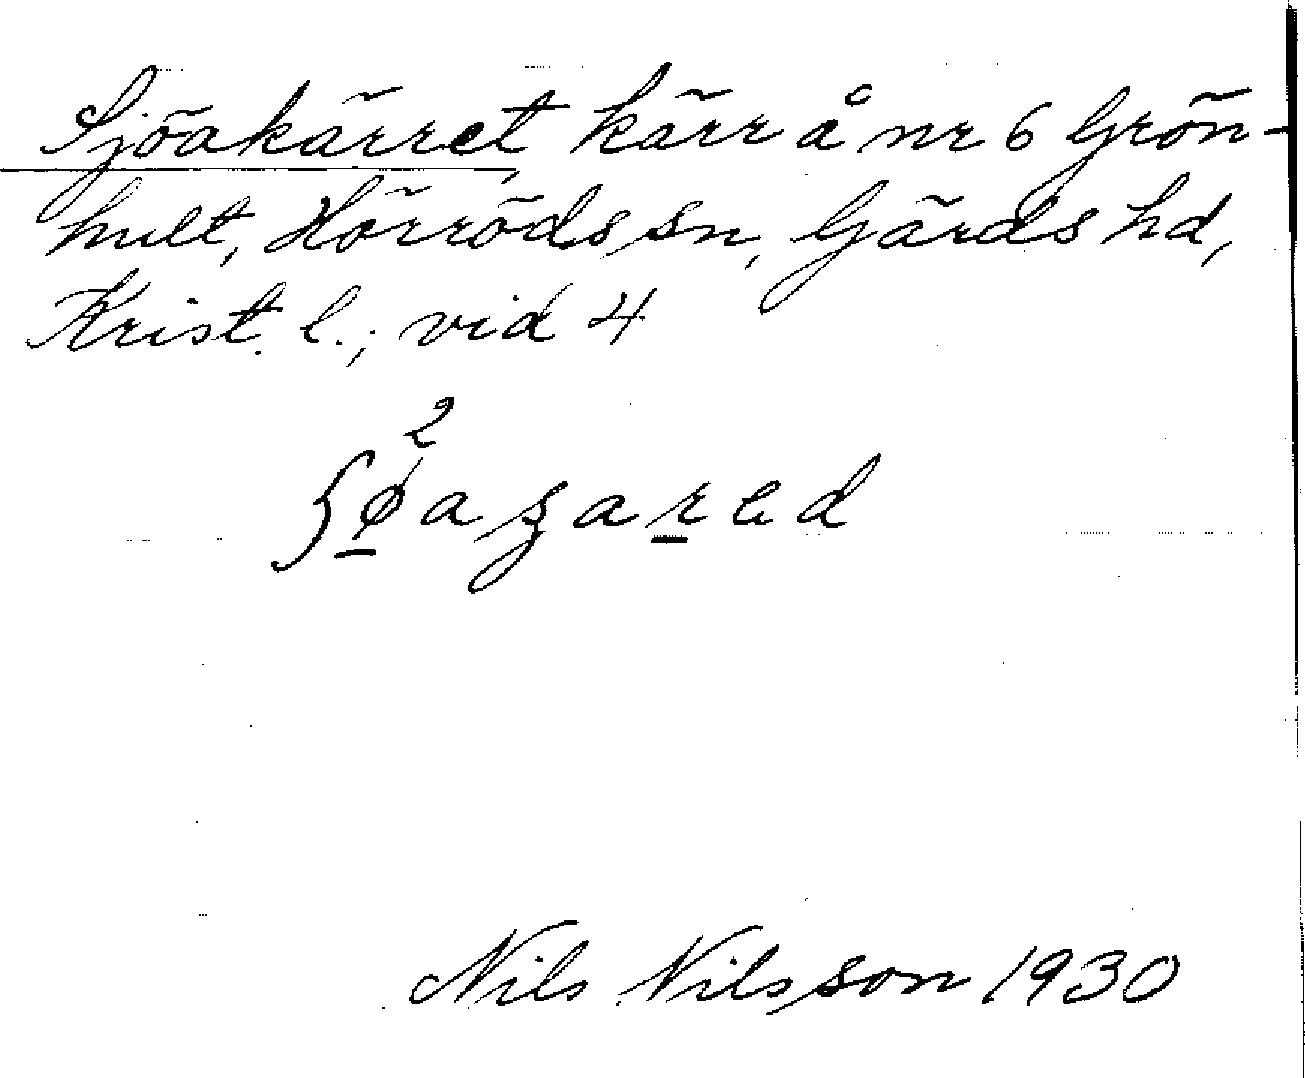 Sjöakärret, kärr å nr 6 Grön-
hult, Hörröds sn, Gärds hd,
Krist. l.; vid 4
2
Nils Nilsson 1930